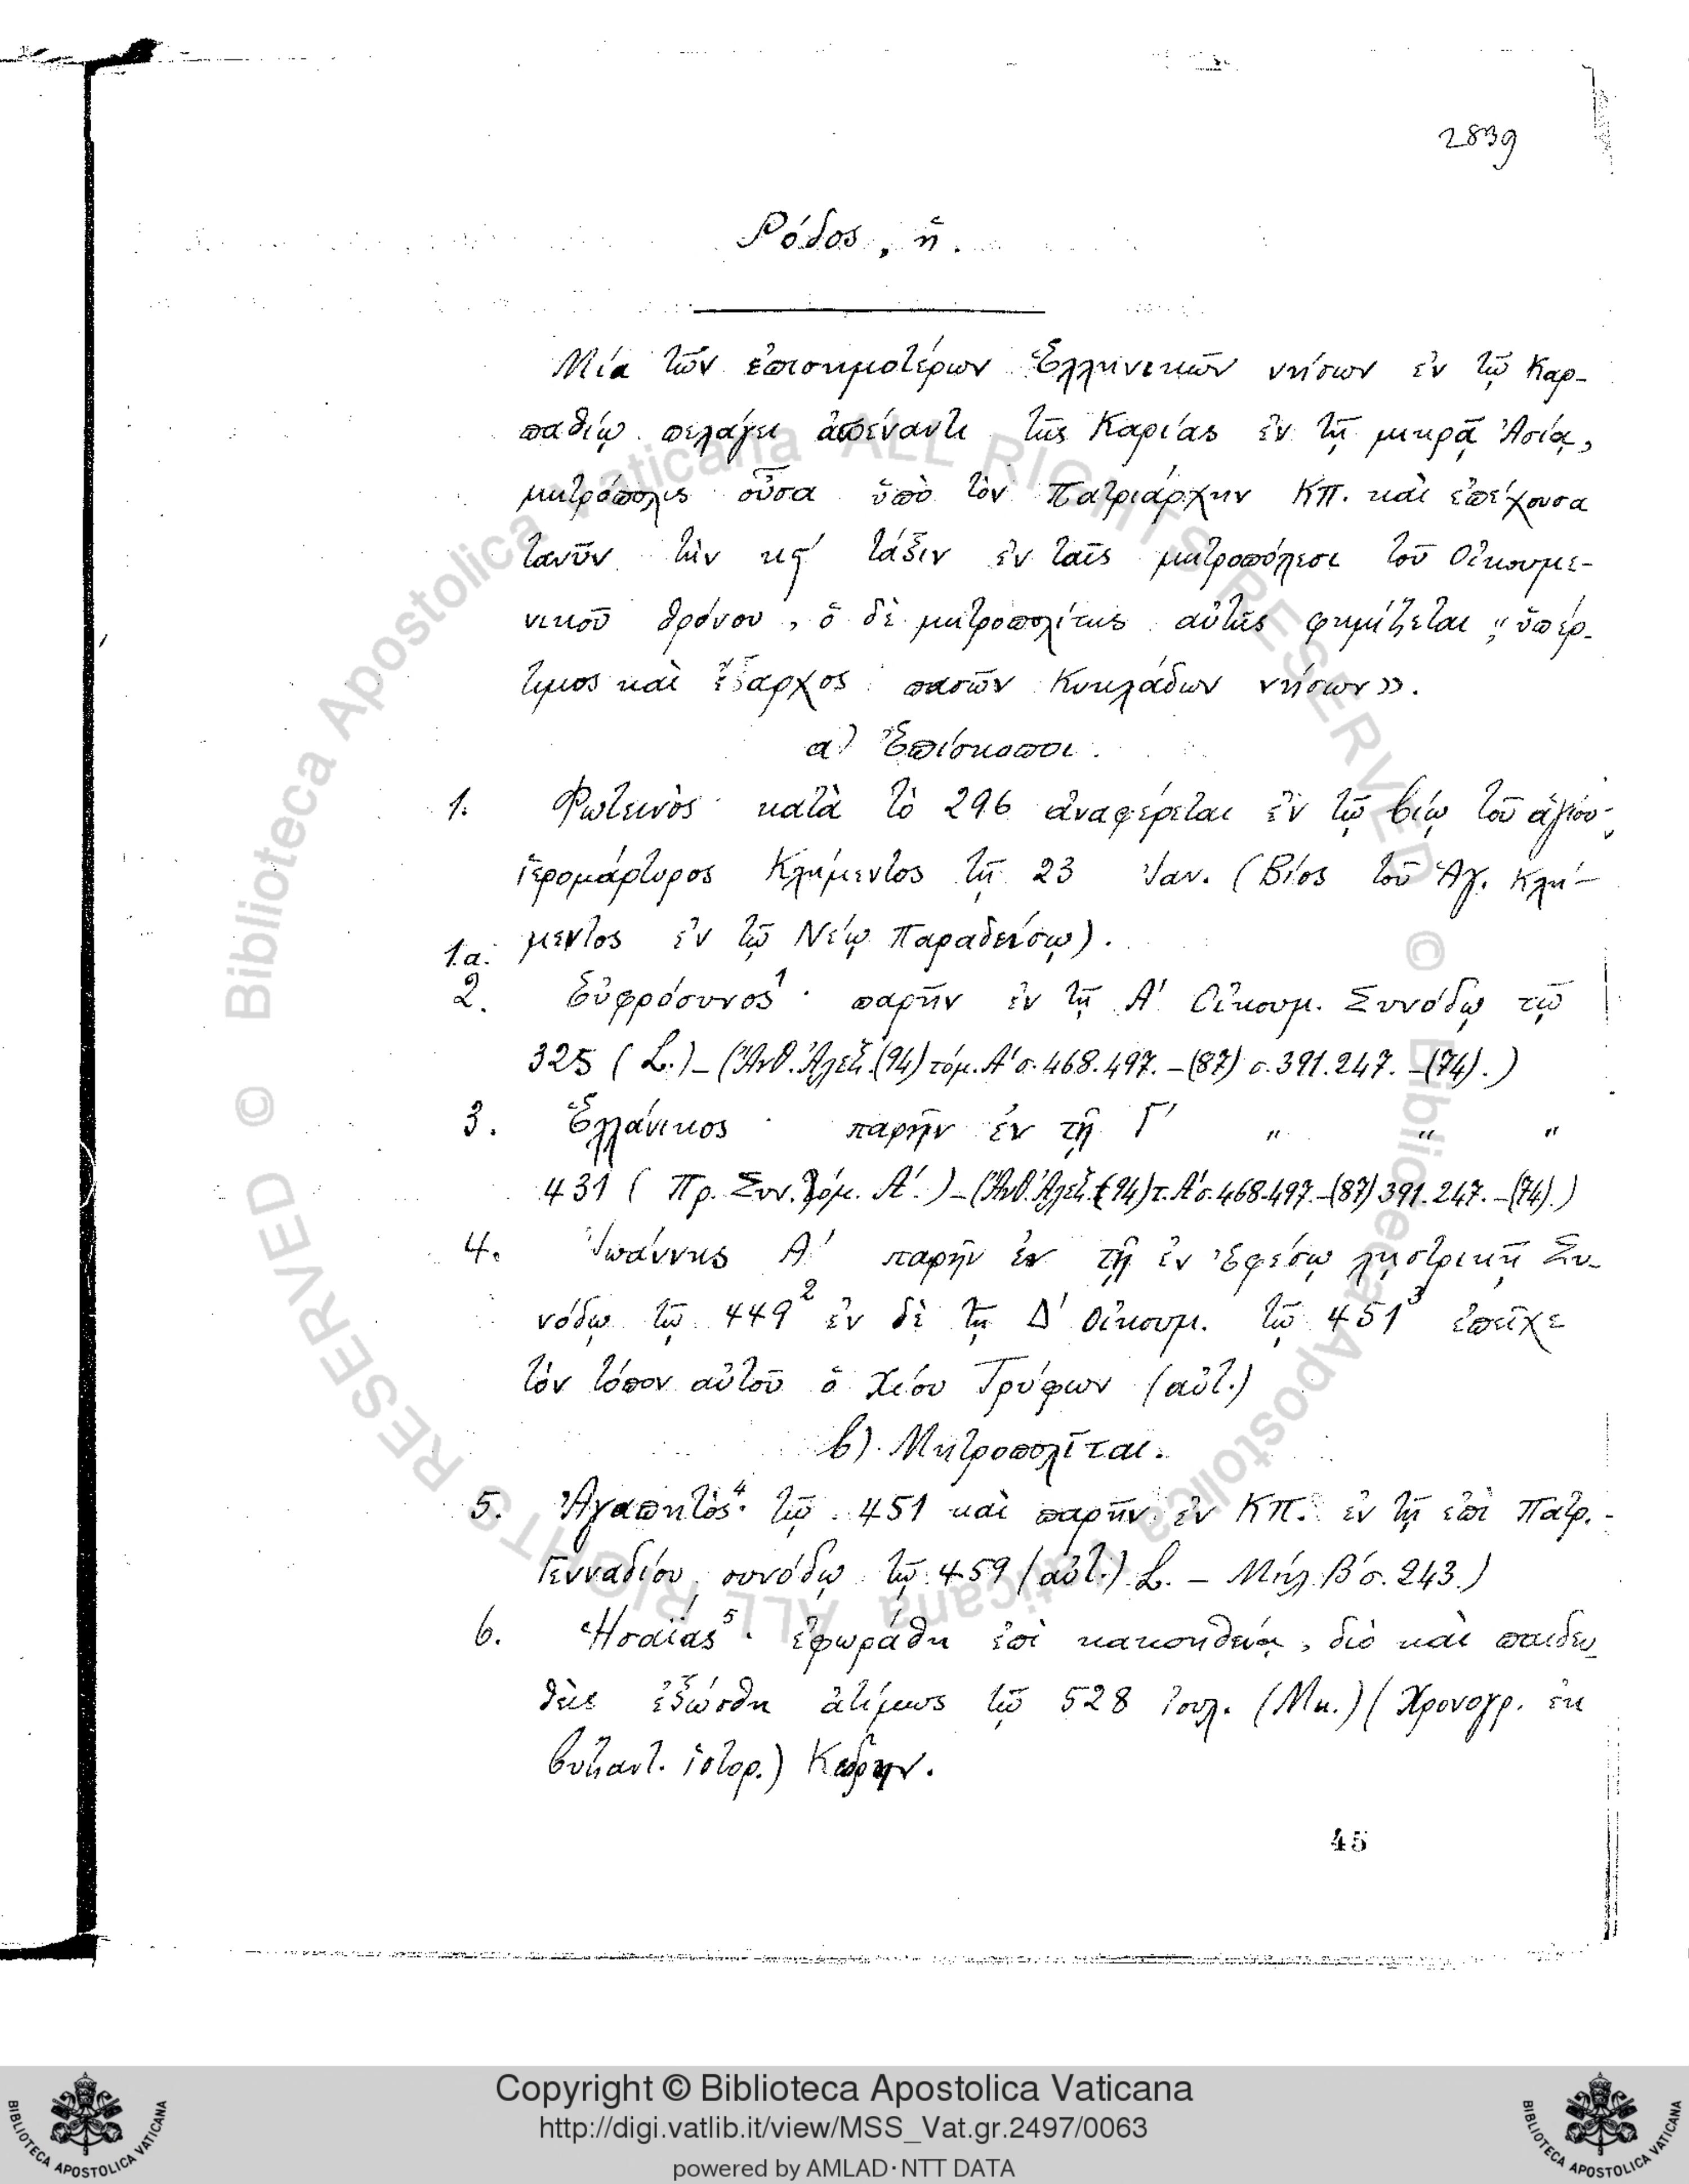 2839
Ρόδος, ἡ.
Μία τῶν ἐπισημοτέρων Ἑλληνικῶν νήσων ἐν τῷ Καρ-
παθίῳ πελάγει ἀπέναντι τῆς Καρίας ἐν τῇ μικρᾷ Ἀσίᾳ,
μητρόπολις οὖσα ὑπὸ τὸν Πατριάρχην ΚΠ. καὶ ἐπέχουσα
τανῦν τὴν τάξιν ἐν ταῖς μητροπόλεσι τοῦ Οἰκουμε-
νικοῦ θρόνου, ὁ δὲ μητροπολίτης αὐτῆς φημίζεται „ὑπέρ-
τιμος καὶ ἔξαρχος πασῶν Κυκλάδων νήσων».
α) Ἐπίσκοποι.
1. Φωτεινὸς· κατὰ τὸ 296 ἀναφέρεται ἐν τῷ βίῳ τοῦ ἁγίου
ἱερομάρτυρος Κλήμεντος τῇ 23 Ἰαν. (Βίος τοῦ Ἁγ. Κλή-
μεντος ἐν τῷ Νέῳ Παραδείσῳ).
1.α.
2. Εὐφρόσυνος¹· παρῆν ἐν τῇ Α' Οἰκουμ. Συνόδῳ τῷ
325 (L.)-(Ἀνθ. Ἀλεξ. (94) τόμ. Α' σ. 468. 497. -(87) σ. 391. 247. -(74).)
3. Ἑλλάνικος· παρῆν ἐν τῇ Γ' " " "
431 (Πρ. Συν. τόμ. Α'.)-(Ἀνθ. Ἀλεξ. (94) τ. Α' σ. 468. 497. -(87) 391. 247. -(74).)
4. Ἰωάννης Α' παρῆν ἐν τῇ ἐν Ἐφέσῳ λῃστρικῇ Συ-
νόδῳ τῷ 449² ἐν δὲ τῇ Δ' Οἰκουμ. τῷ 451³ ἐπεῖχε
τὸν τόπον αὐτοῦ ὁ Χίου Τρύφων (αὐτ.)
β) Μητροπολῖται.
5. Ἀγαπητὸς⁴· τῷ 451 καὶ παρῆν ἐν ΚΠ. ἐν τῇ ἐπὶ Πατρ.
Γενναδίου συνόδῳ τῷ 459 (αὐτ.) L. - Μήλ. Β' σ. 243.)
6. Ἡσαΐας⁵· ἐφωράθη ἐπὶ κακοηθείᾳ, διὸ καὶ παιδευ-
θεὶς ἐξώσθη ἀτίμως τῷ 528 Ἰουλ. (Μη.) (Χρονογρ. ἐκ
βυζαντ. ἱστορ.) Κεδρην.
45
© Biblioteca Apostolica Vaticana ALL RIGHTS RESERVED
© Biblioteca Apostolica Vaticana ALL RIGHTS RESERVED
Copyright © Biblioteca Apostolica Vaticana
http://digi.vatlib.it/view/MSS_Vat.gr.2497/0063
powered by AMLAD·NTT DATA
BIBLIOTECA APOSTOLICA VATICANA
BIBLIOTECA APOSTOLICA VATICANA